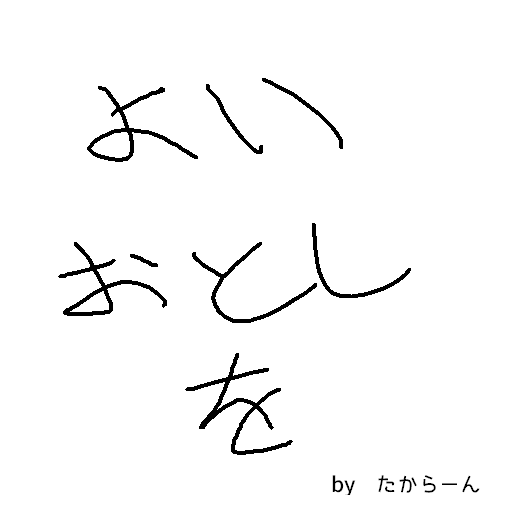 よい
おとし
を
by　たからーん